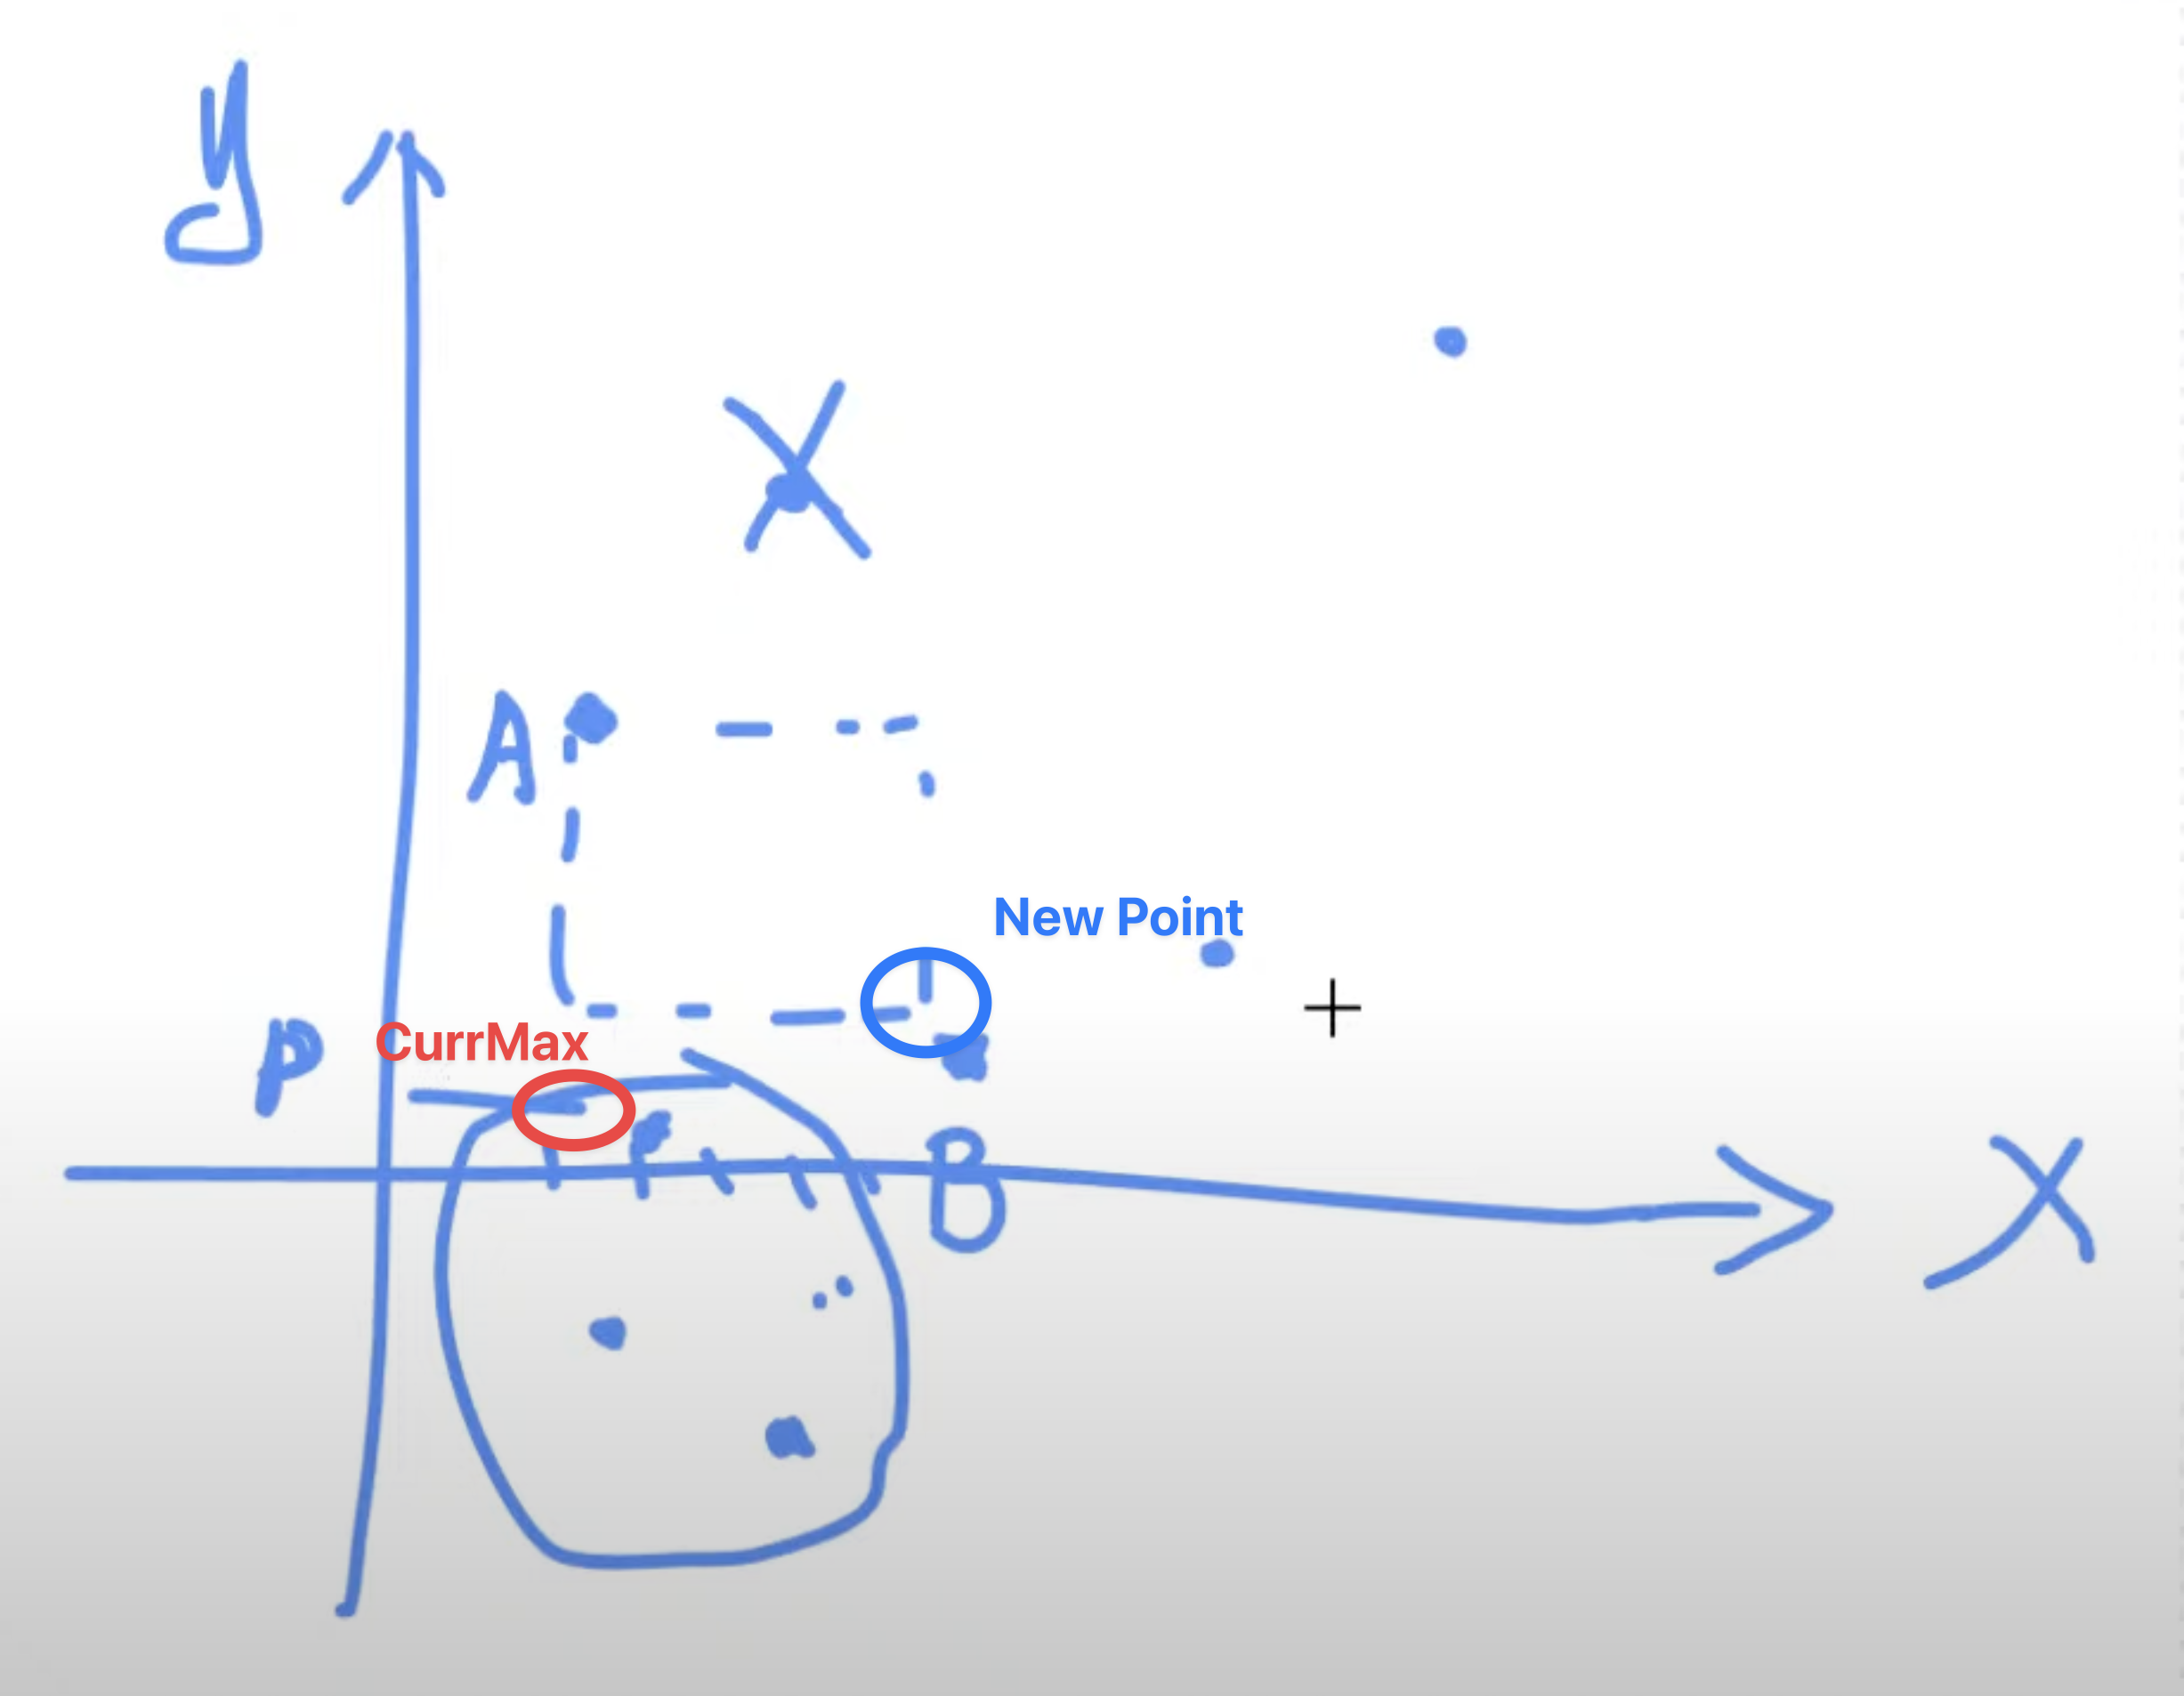 y
A
New Point
P
CurrMax
B
X